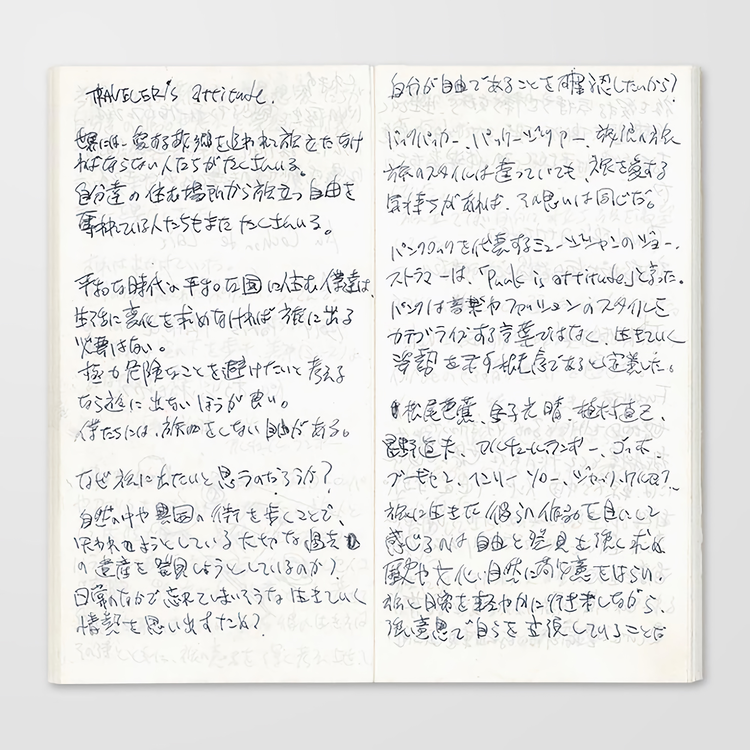 TRAVELER's attitude.
世界には、愛する故郷を追われて旅立たなけ
ればならない人たちがたくさんいる。
自分達の住む場所から旅立つ自由を
奪われている人たちもまたたくさんいる。
平和な時代の平和な国に住む僕達は、
生活に変化を求めなければ旅に出る
必要はない。
極力危険なことを避けたいと考える
なら旅に出ないほうが良い。
僕たちには、旅をしない自由がある。
なぜ旅に出たいと思うのだろうか?
自然の中や異国の街を歩くことで、
失われようとしている大切な過去
の遺産を発見しようとしているのか?
日常のなかで忘れてしまいそうな生きていく
情熱を思い出すため?
自分が自由であることを確認したいから?
バックパッカー、パッケージツアー、放浪の旅
旅のスタイルは違っていても、旅を愛する
気持ちがあれば、その思いは同じだ。
パンクロックを代表するミュージシャンのジョー・
ストラマーは、「Punk is attitude」と言った。
パンクは音楽やファッションのスタイルを
カテゴライズする言葉ではなく、生きていく
姿勢を示す概念であると定義した。
松尾芭蕉、金子光晴、植村直己、
星野道夫、アルチュールランボー、ゴッホ、
ゴーギャン、ヘンリーソロー、ジャックケルアック
旅に生きた彼らの作品を目にして
感じるのは自由と発見を強く求め
歴史や文化、自然に敬意をはらい、
旅と日常を軽やかに行き来しながら、
強い意思で自らを表現していることだ